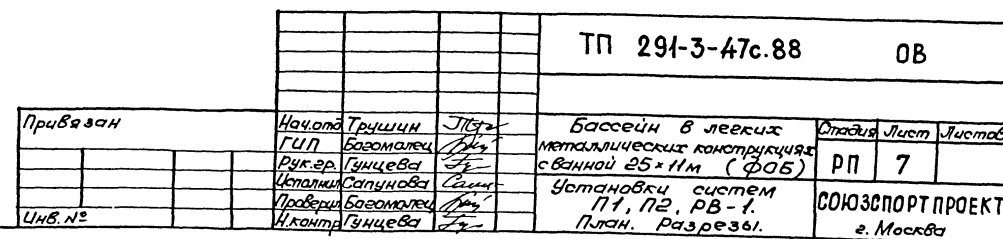 ТП 291-3-47с.88 ОВ
Привязан
Нач.отд Трушин
ГИП Богомолец
Рук.гр. Гунцева
Исполнил Сапунова
Проверил Богомолец
Н.контр Гунцева
Инв. №
Бассейн в легких
металлических конструкциях
с ванной 25×11м (ФОБ)
Стадия Лист Листов
РП 7
Установки систем
П1, П2, РВ-1.
План. Разрезы.
СОЮЗСПОРТПРОЕКТ
г. Москва